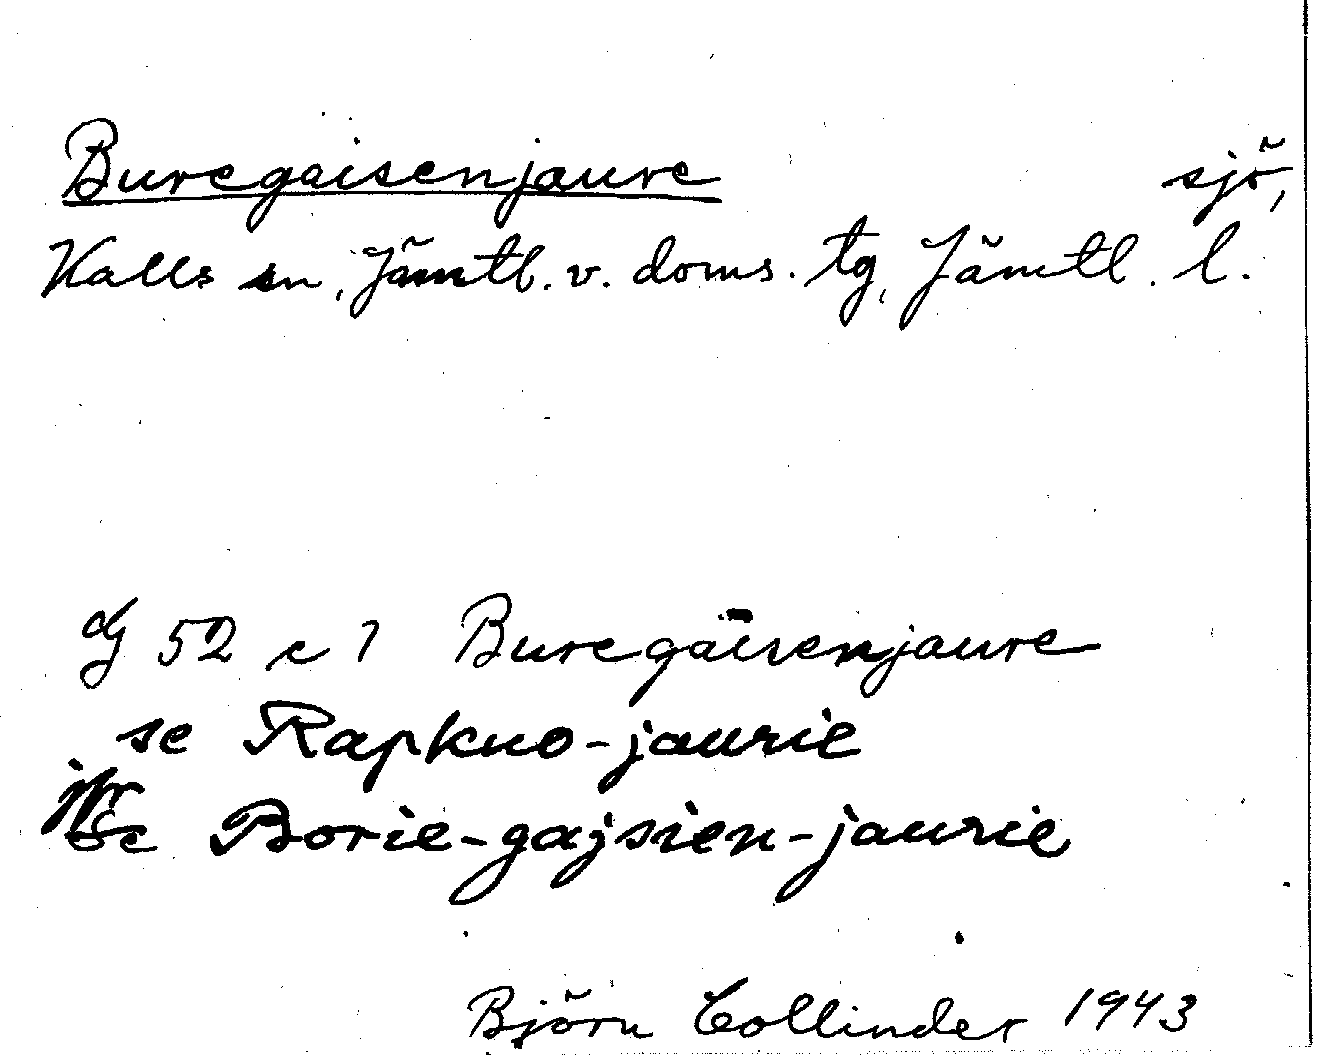 Buregaisenjaure sjö,
Kalls sn, Jämtl. v. doms. tg, Jämtl. l.
G 52 c 1 Buregaisenjaure
se Rapkuo-jaurie
jfr Borie-gajsien-jaurie
Björn Collinder 1943